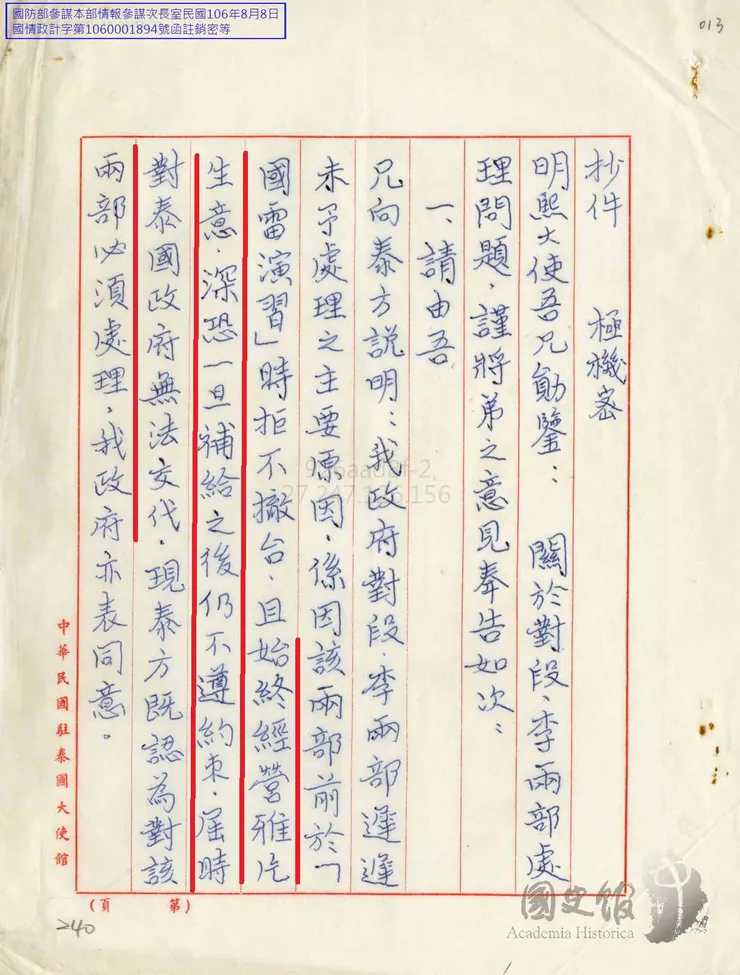 國防部參謀本部情報參謀次長室民國106年8月8日
國情政計字第1060001894號函註銷密等
013
抄件　極機密
明熙大使吾兄勛鑒：關於對段、李兩部處
理問題，謹將弟之意見奉告如次：
一、請由吾
兄向泰方說明：我政府對段、李兩部遲遲
未予處理之主要原因，係因該兩部前於「
國雷演習」時拒不撤台，且始終經營雅片
生意，深恐一旦補給之後仍不遵約束，屆時
對泰國政府無法交代。現泰方既認為對該
兩部必須處理，我政府亦表同意。
中華民國駐泰國大使館
(第　頁)
240
國史館
Academia Historica